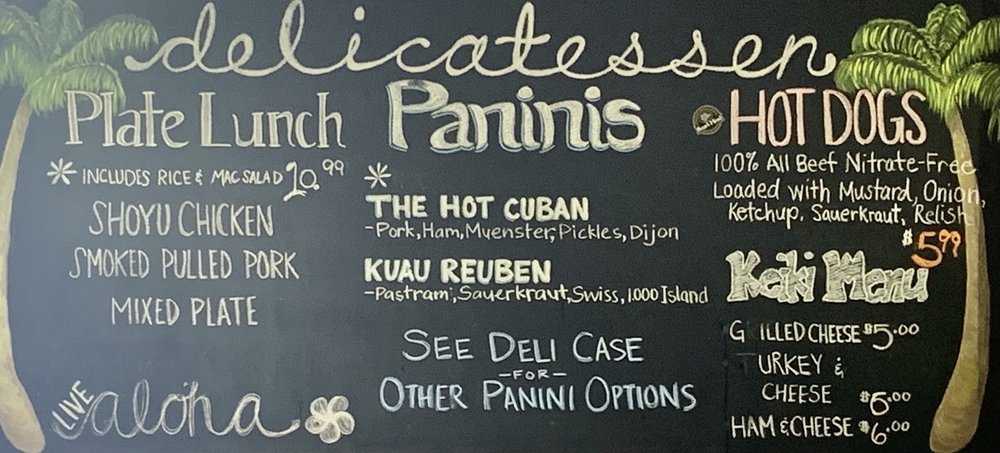 delicatessen
Plate Lunch
* INCLUDES RICE & MAC SALAD 10.99
SHOYU CHICKEN
SMOKED PULLED PORK
MIXED PLATE
LIVE aloha
Paninis
*
THE HOT CUBAN
-Pork, Ham, Muenster, Pickles, Dijon
KUAU REUBEN
-Pastrami, Sauerkraut, Swiss, 1000 Island
SEE DELI CASE
-FOR-
OTHER PANINI OPTIONS
HOT DOGS
100% All Beef Nitrate-Free
Loaded with Mustard, Onion,
Ketchup, Sauerkraut, Relish
$5.99
Keiki Menu
G ILLED CHEESE $5.00
TURKEY &
CHEESE $6.00
HAM & CHEESE $6.00